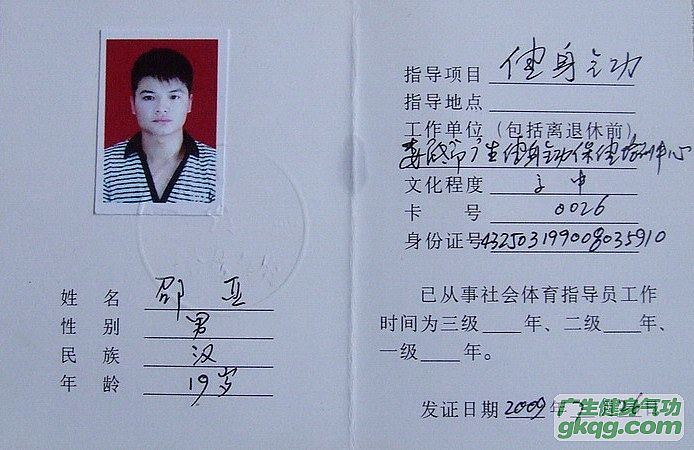 姓 名 邵 亚
性 别 男
民 族 汉
年 龄 19岁
指导项目 健身气功
指导地点
工作单位（包括离退休前）
娄底市广生健身气功保健培训中心
文化程度 高中
卡 号 0026
身份证号 432503199008035910
已从事社会体育指导员工作
时间为三级____年、二级____年、
一级____年。
发证日期 2009年
广生健身气功
gkqg.com